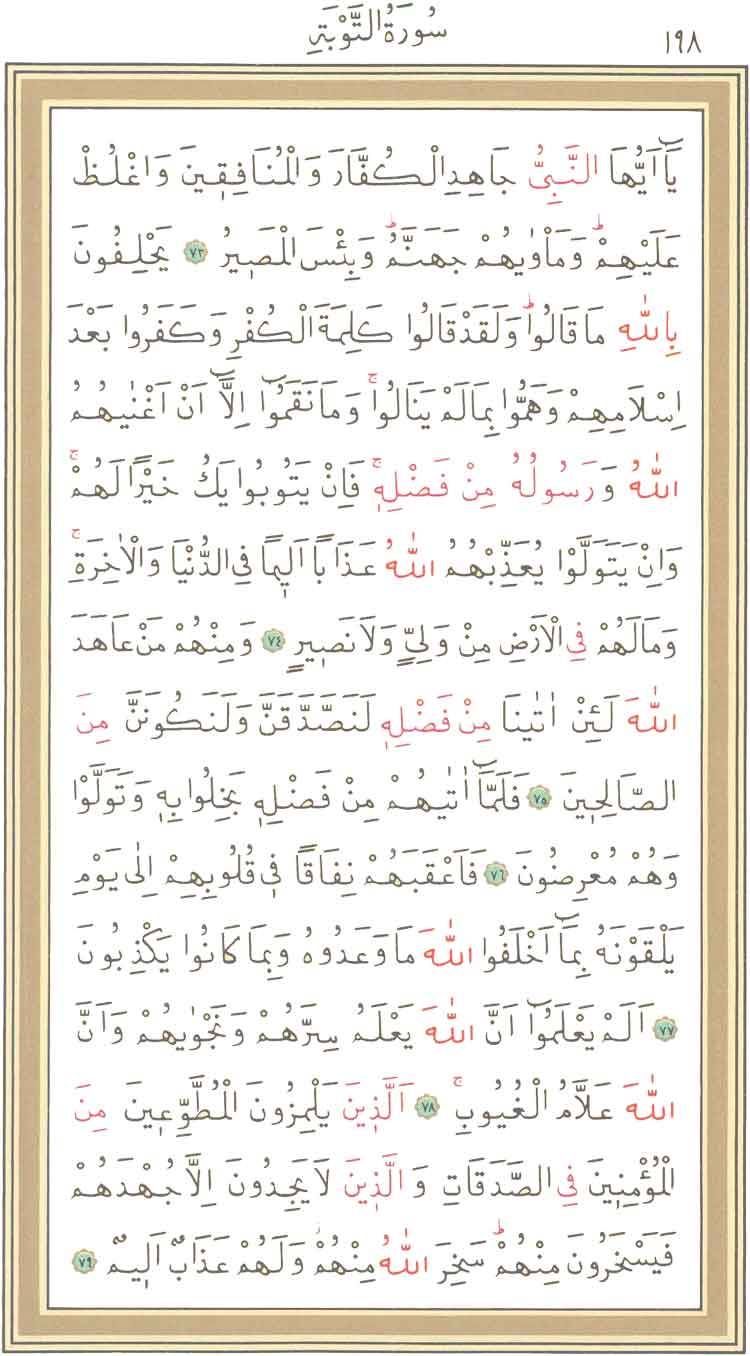 ١٩٨
سُورَةُ التَّوْبَةِ
يَٓا اَيُّهَا النَّبِىُّ جَاهِدِ الْكُفَّارَ وَالْمُنَافِقٖينَ وَاغْلُظْ
عَلَيْهِمْؕ وَمَأْوٰيهُمْ جَهَنَّمُؕ وَبِئْسَ الْمَصٖيرُ ﴿٧٣﴾ يَحْلِفُونَ
بِاللّٰهِ مَا قَالُواؕ وَلَقَدْ قَالُوا كَلِمَةَ الْكُفْرِ وَكَفَرُوا بَعْدَ
اِسْلَامِهِمْ وَهَمُّوا بِمَا لَمْ يَنَالُواۚ وَمَا نَقَمُٓوا اِلَّٓا اَنْ اَغْنٰيهُمُ
اللّٰهُ وَرَسُولُهُ مِنْ فَضْلِهٖۚ فَاِنْ يَتُوبُوا يَكُ خَيْرًا لَهُمْۚ
وَاِنْ يَتَوَلَّوْا يُعَذِّبْهُمُ اللّٰهُ عَذَابًا اَلٖيمًا فِى الدُّنْيَا وَالْاٰخِرَةِۚ
وَمَا لَهُمْ فِى الْاَرْضِ مِنْ وَلِىٍّ وَلَا نَصٖيرٍ ﴿٧٤﴾ وَمِنْهُمْ مَنْ عَاهَدَ
اللّٰهَ لَئِنْ اٰتٰينَا مِنْ فَضْلِهٖ لَنَصَّدَّقَنَّ وَلَنَكُونَنَّ مِنَ
الصَّالِحٖينَ ﴿٧٥﴾ فَلَمَّٓا اٰتٰيهُمْ مِنْ فَضْلِهٖ بَخِلُوا بِهٖ وَتَوَلَّوْا
وَهُمْ مُعْرِضُونَ ﴿٧٦﴾ فَاَعْقَبَهُمْ نِفَاقًا فٖى قُلُوبِهِمْ اِلٰى يَوْمِ
يَلْقَوْنَهُ بِمَٓا اَخْلَفُوا اللّٰهَ مَا وَعَدُوهُ وَبِمَا كَانُوا يَكْذِبُونَ
﴿٧٧﴾ اَلَمْ يَعْلَمُٓوا اَنَّ اللّٰهَ يَعْلَمُ سِرَّهُمْ وَنَجْوٰيهُمْ وَاَنَّ
اللّٰهَ عَلَّامُ الْغُيُوبِۚ ﴿٧٨﴾ اَلَّذٖينَ يَلْمِزُونَ الْمُطَّوِّعٖينَ مِنَ
الْمُؤْمِنٖينَ فِى الصَّدَقَاتِ وَالَّذٖينَ لَا يَجِدُونَ اِلَّا جُهْدَهُمْ
فَيَسْخَرُونَ مِنْهُمْؕ سَخِرَ اللّٰهُ مِنْهُمْؗ وَلَهُمْ عَذَابٌ اَلٖيمٌ ﴿٧٩﴾